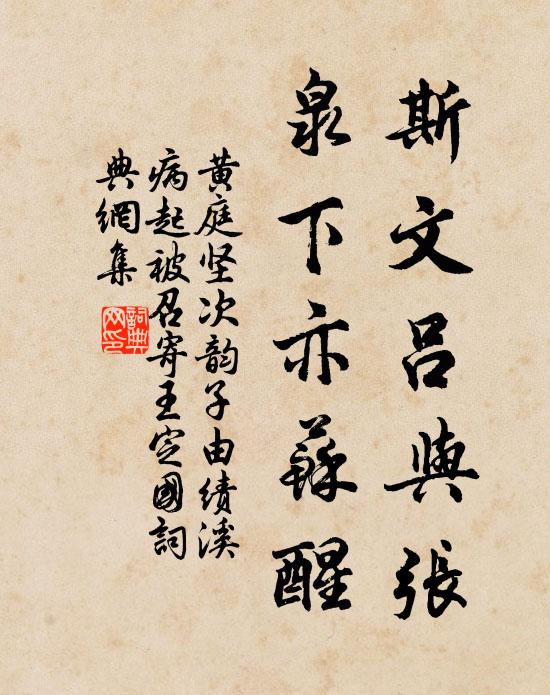 斯文吕與張
泉下亦蘇醒
黄庭坚次韵子由績溪
病起被召寄王定國詞
典網集
詞典网印